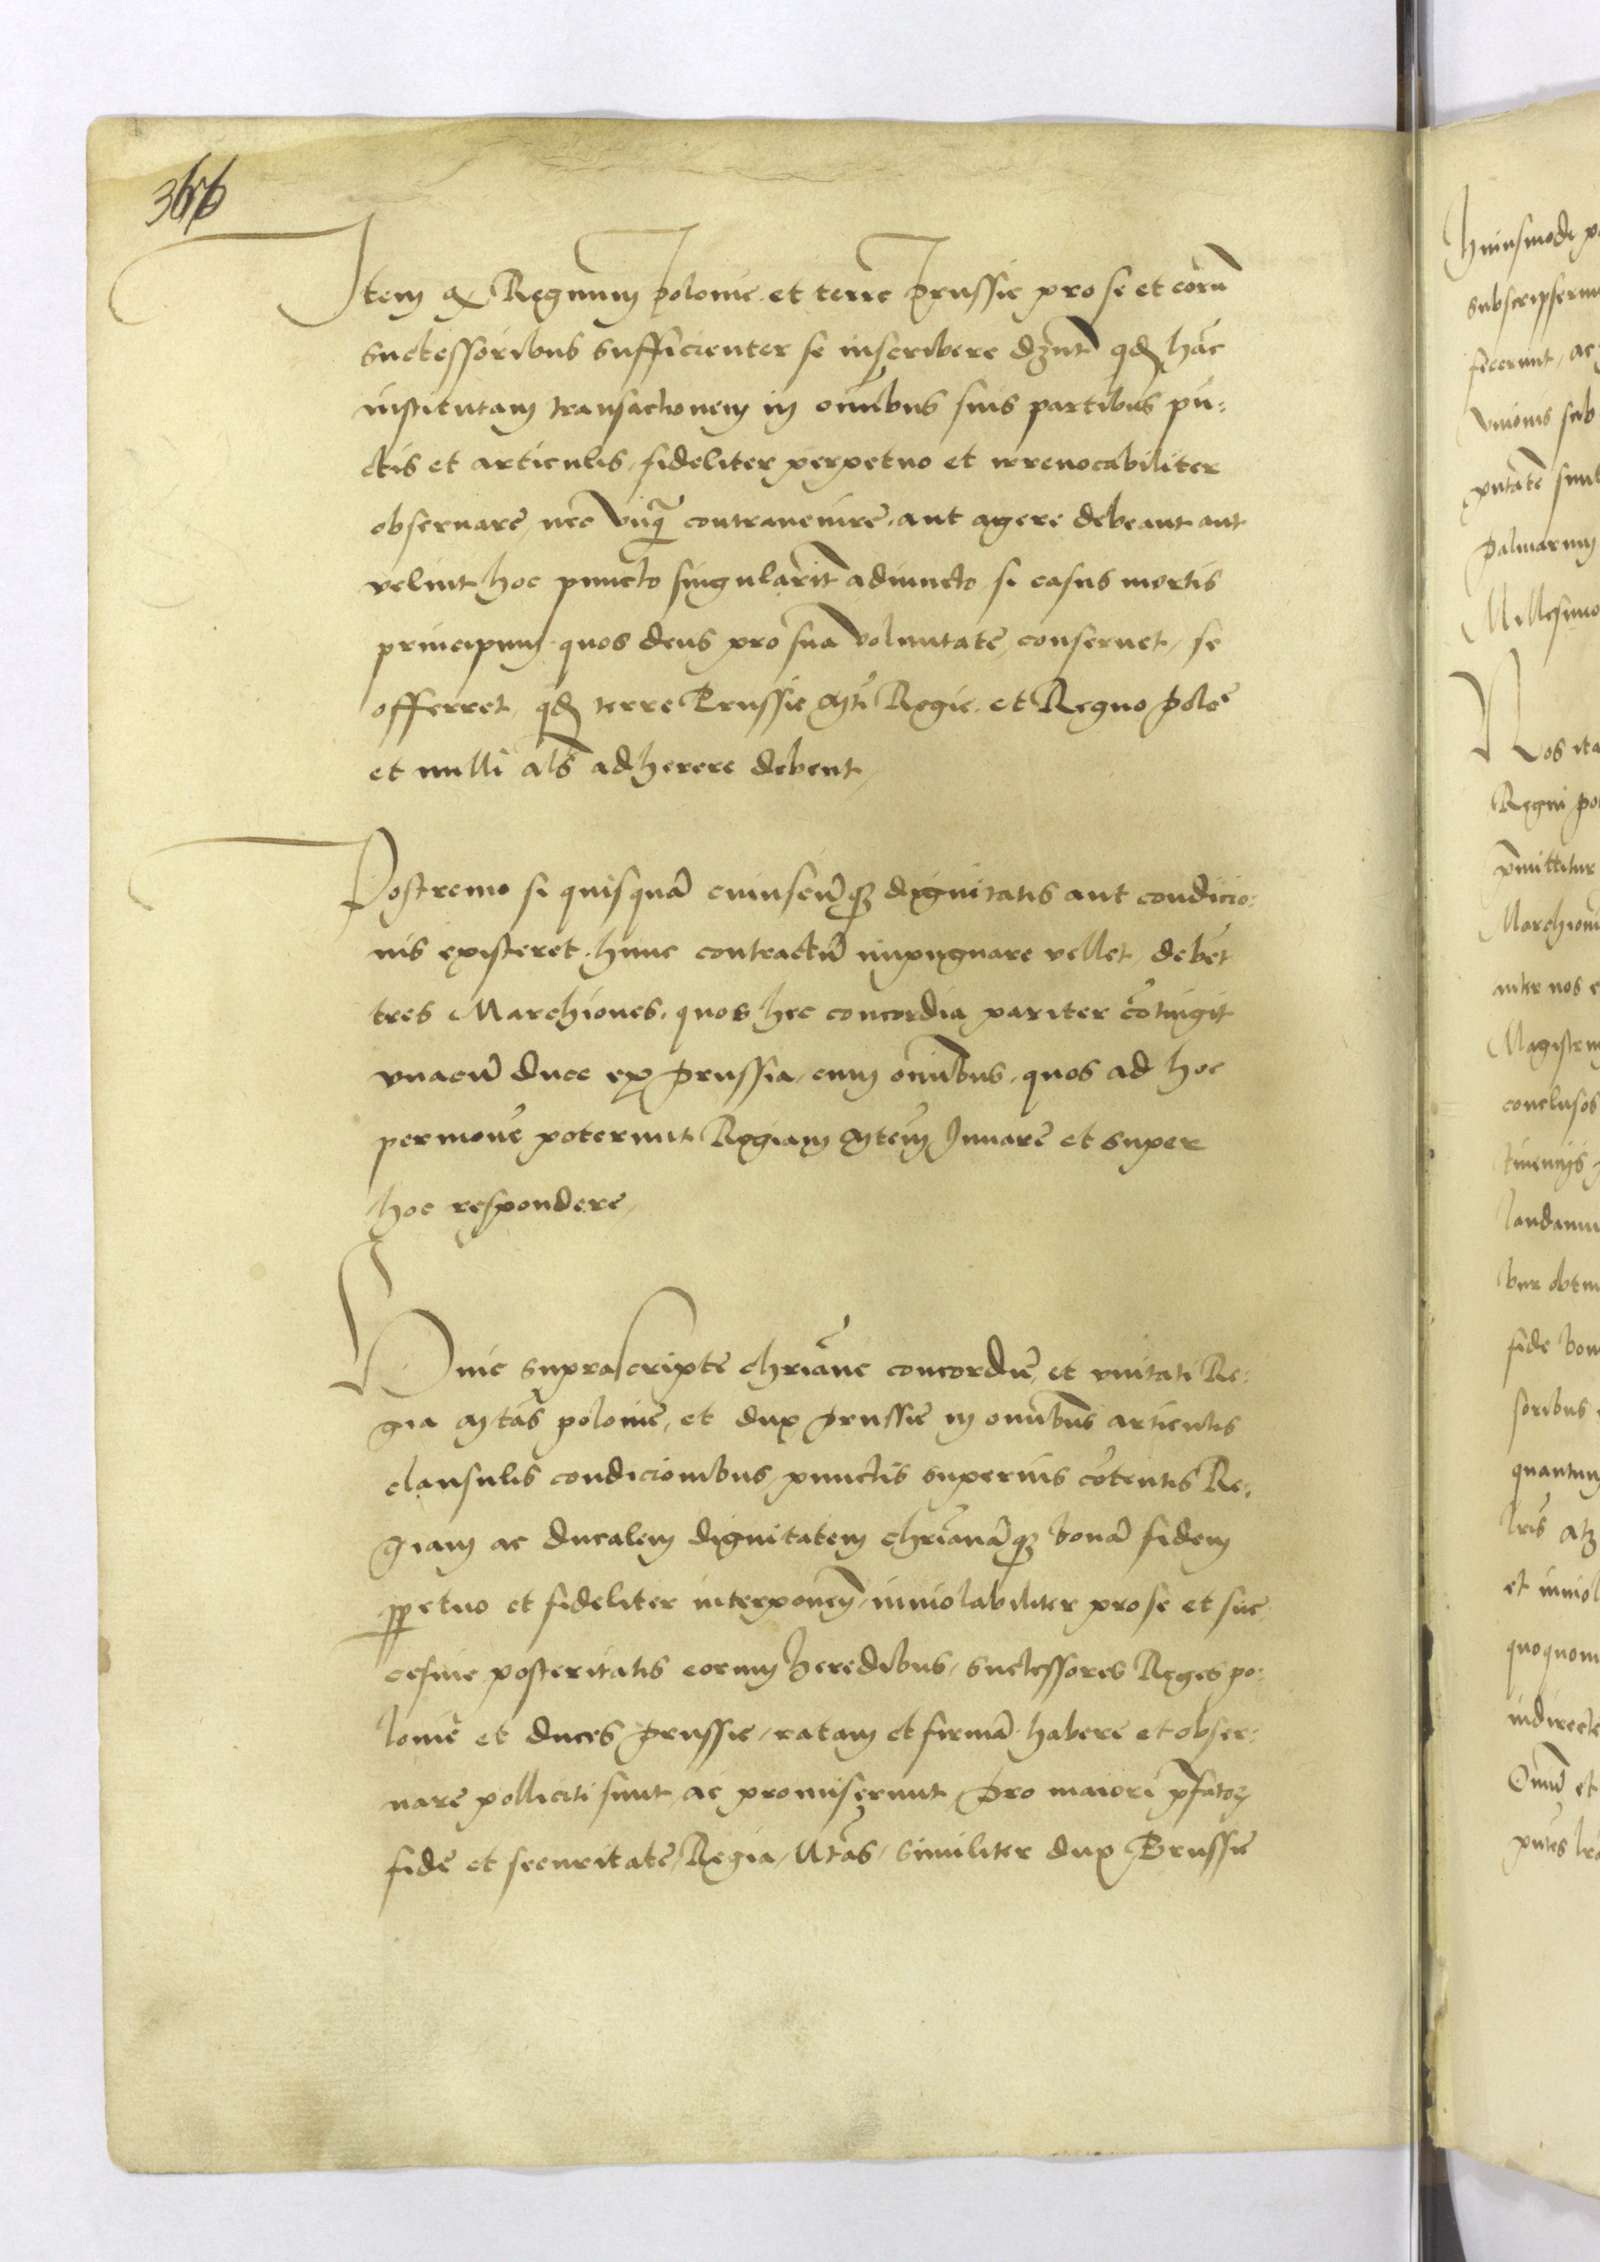 366
Item q Regnum polonie et terre prussie pro se et eorū
successoribus sufficienter se inscribere dēnt qd hāc
institutam transactionem in om̄ibus suis partibus pū-
ctis et articulis, fideliter perpetuo et irreuocabiliter
obseruare, nec vnq̄ contrauenire, aut agere debeant aut
velint hoc puncto singularit̄ adiuncto, si casus mortis
principum quos deus pro sua voluntate, conseruet, se
offerret, qd terre Prussie Mti Regie et Regno pole
et nulli als adherere debent,
Postremo si quisquā cuiuscūqȝ dignitatis aut condicio-
nis existeret, hunc contractū impugnare vellet, debēt
tres Marchiones, quos hec concordia pariter cōtingit
vnacū duce ex prussia, cum om̄ibus, quos ad hoc
permouē poterunt Regiam Mtem Iuuare et super
hoc respondere,
Huic suprascripte chrīane concordie, et vnitati Re-
gia Mtās polonie, et dux prussie in om̄ibus articulis
clausulis condicionibus, punctis superius cōtentis Re-
giam ac ducalem dignitatem chrīanāqȝ bonā fidem
ppetuo et fideliter interponen̄, inuiolabiliter pro se et suc
cessiue posteritatis eorum heredibus, successores Reges po-
lonie et duces prussie, ratam et firmā habere et obser-
uare polliciti sunt, ac promiserunt, pro maiori p̄fatoꝝ
fide et securitate, Regia, Mtās, similiter dux Prussie
huiusmodi
subscripserun
fecerunt, ac
vnionis sub
palmarum
Millesimo
Nos ita
Regni po
p̄mittitur
Marchioni
inter nos e
Magistrum
conclusos
laudamu
fide bon
soribus
quantum
lrīs atȝ
et inuiol
quoquom
indirecte
Om̄iū et